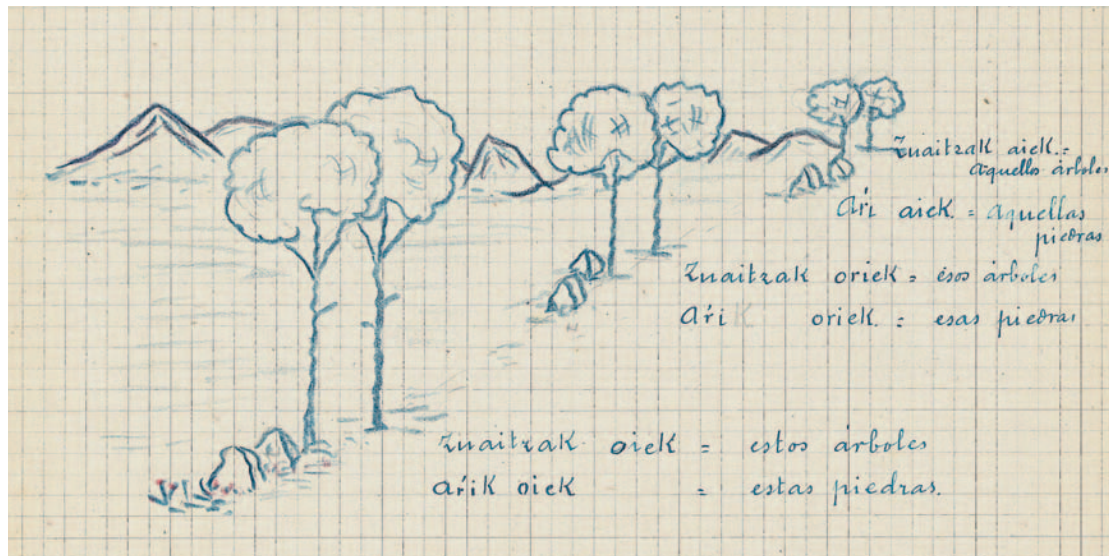 Zuaitzak aiek. =
aquellos árboles
Aŕi aiek. = aquellas
piedras
Zuaitzak oriek = esos árboles
Aŕik oriek. = esas piedras
Zuaitzak oiek = estos árboles
Aŕik oiek = estas piedras.